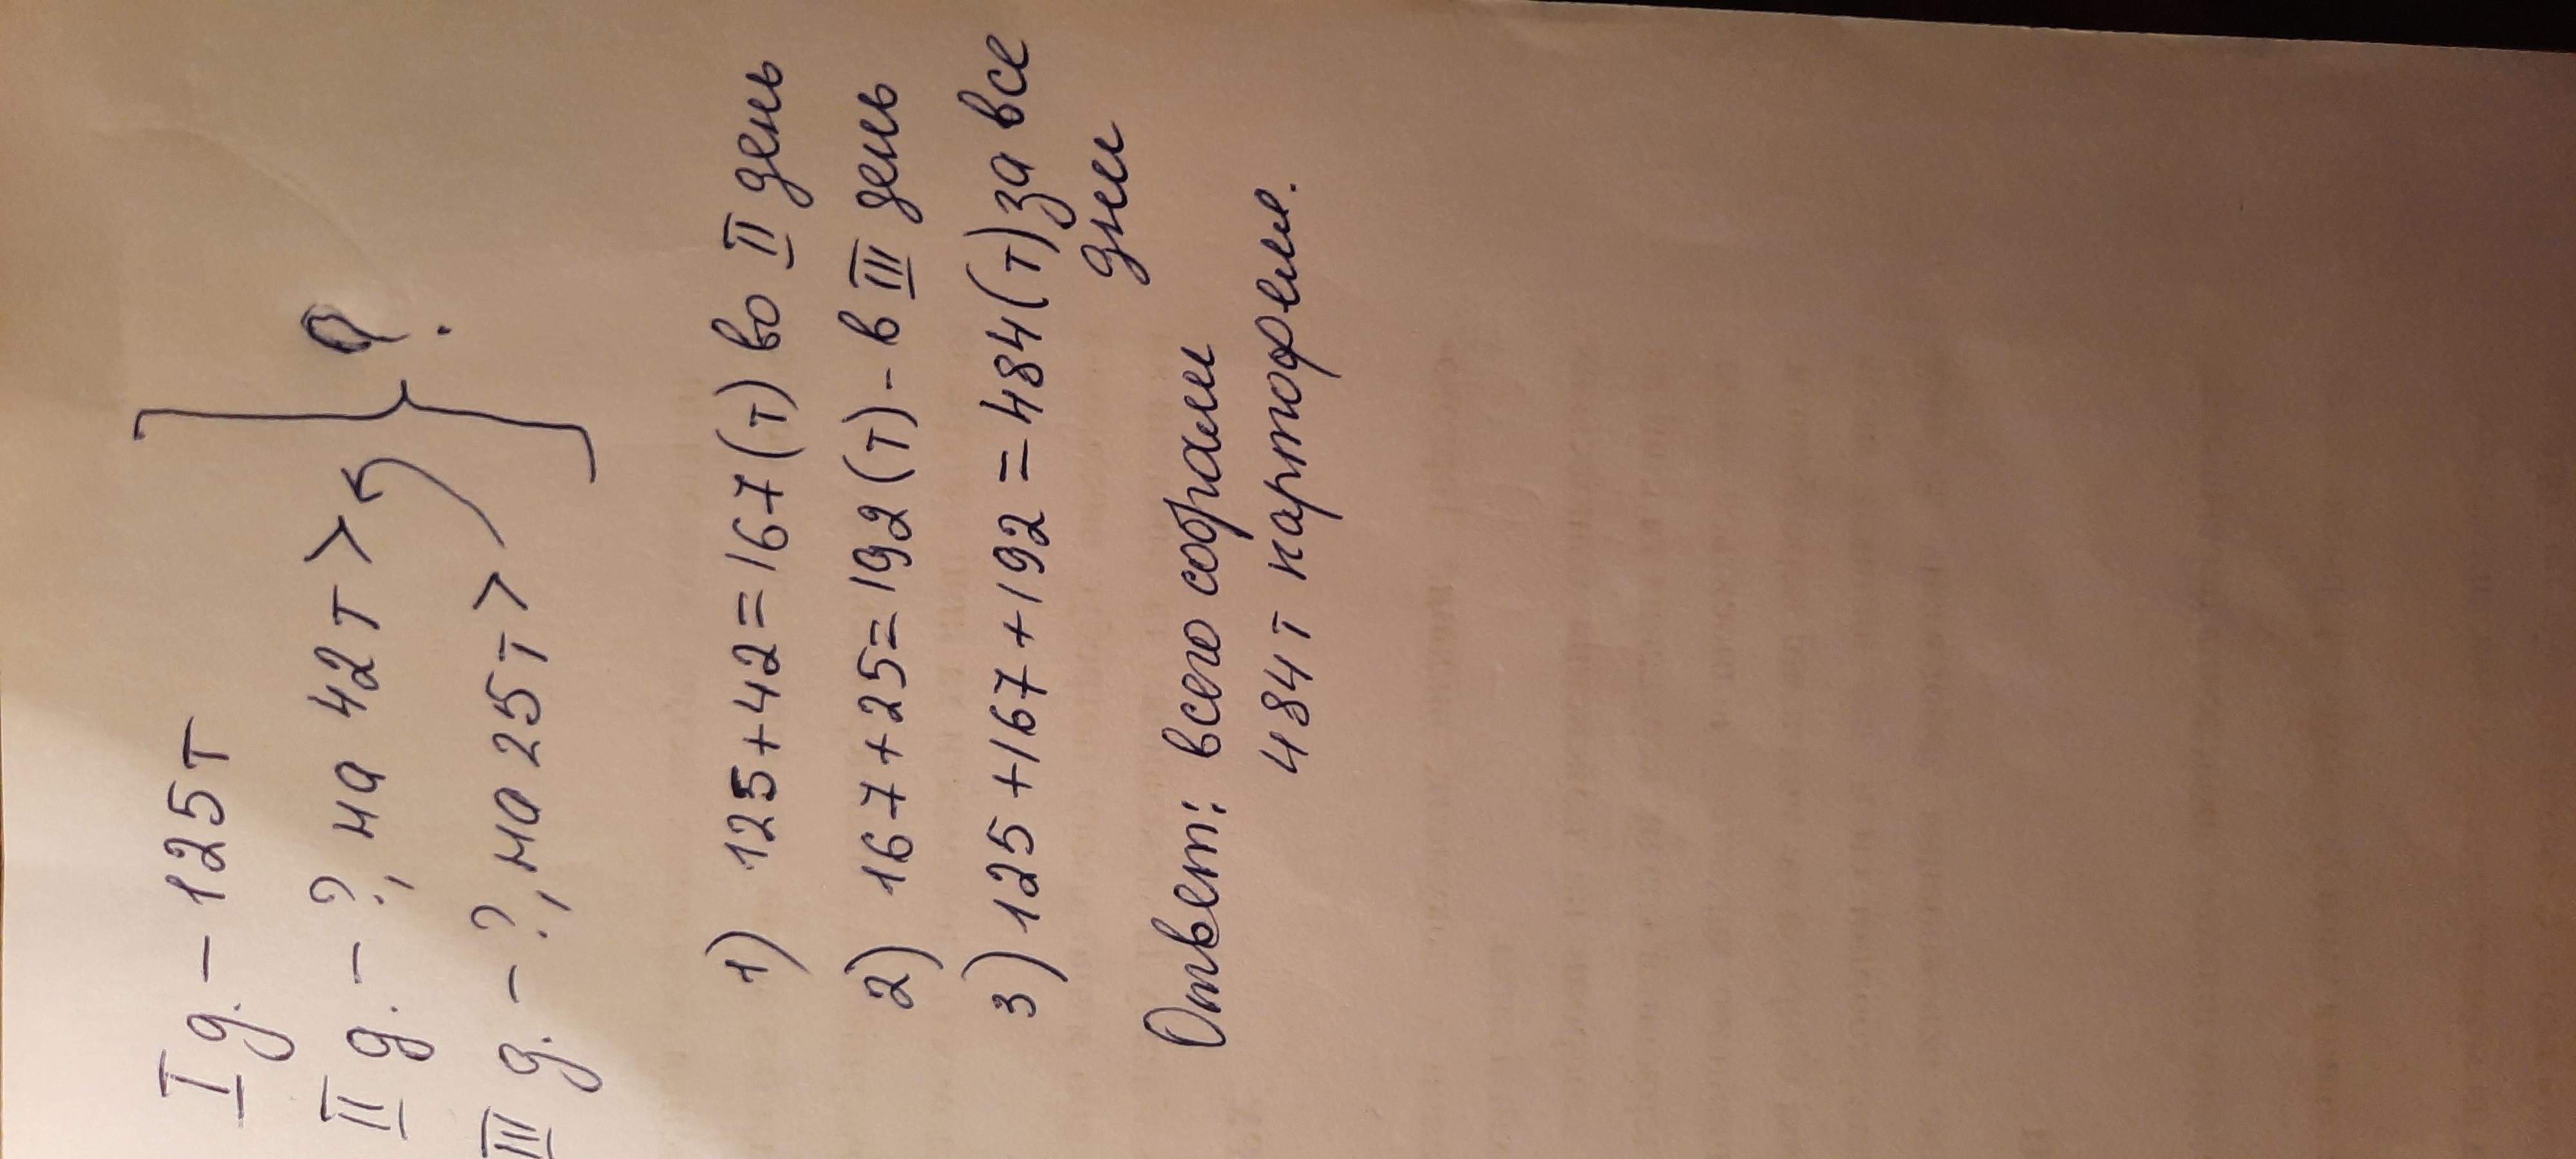 I д. - 125т
II д. - ?, на 42т >
III д. - ?, на 25т >
?
1) 125+42=167(т) во II день
2) 167+25=192(т) - в III день
3) 125+167+192=484(т) за все
дни
Ответ: всего собрали
484т картофеля.